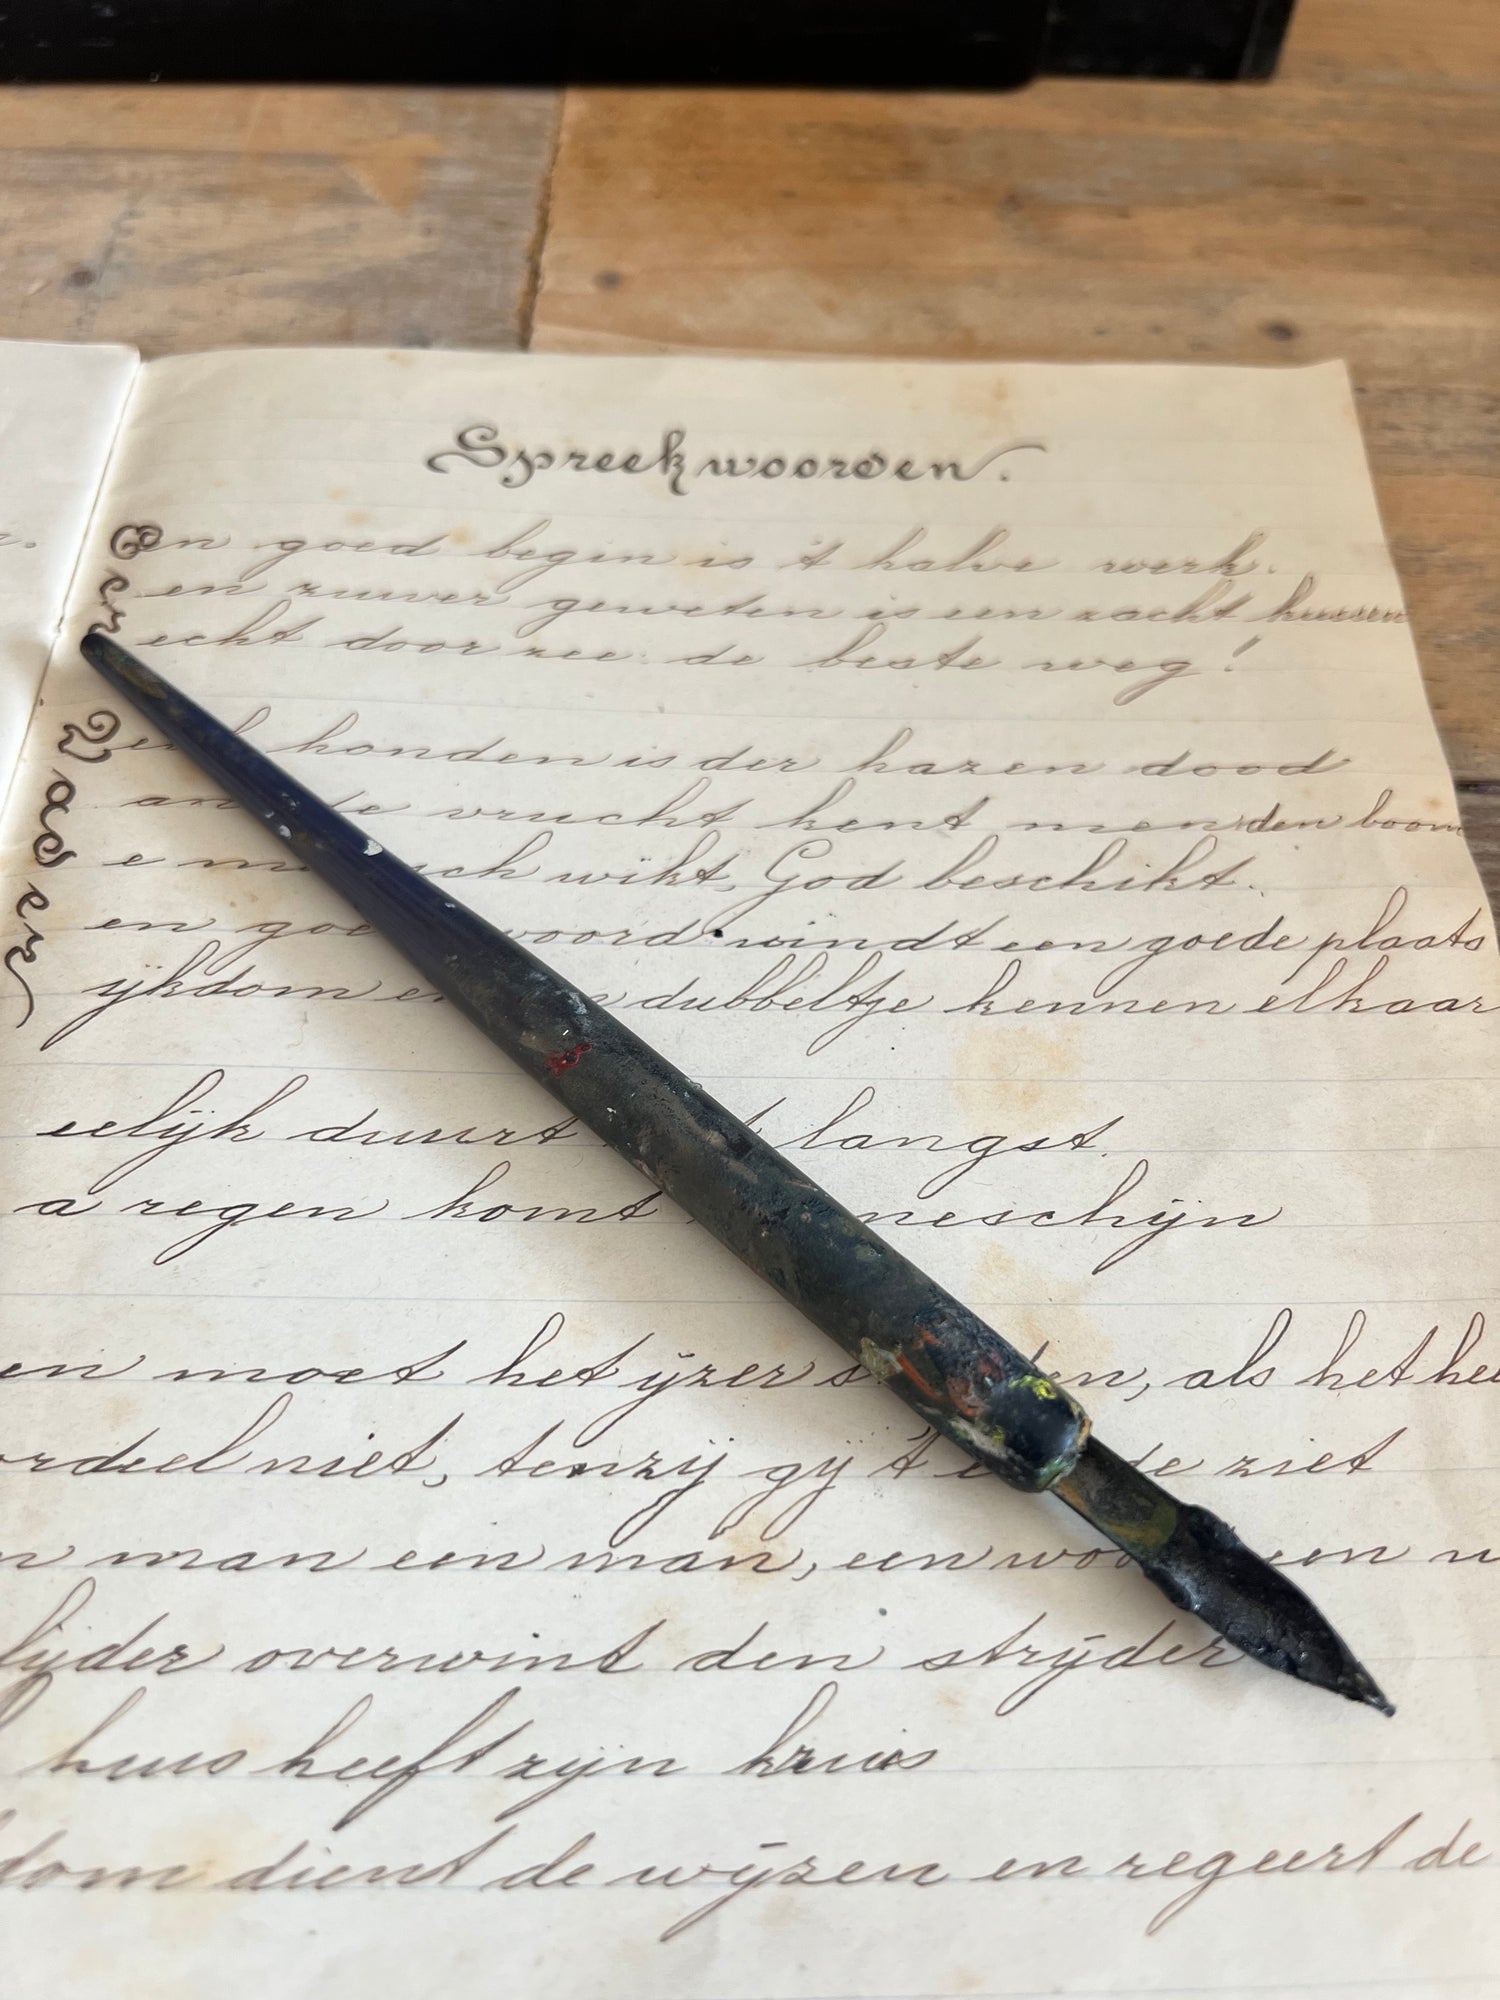 Spreekwoorden.
Een goed begin is 't halve werk.
en zuiver geweten is een zacht kussen
echt door zee de beste weg!
honden is der hazen dood
an de vrucht kent men den boom
e mensch wikt, God beschikt.
en goed woord vindt een goede plaats
ijkdom en dubbeltje kennen elkaar
eelijk duurt langst.
a regen komt neschijn
en moet het ijzer s en, als het hee
ordeel niet, tenzij gij 't einde ziet
n man een man, een woord een w
lijder overwint den strijder
huis heeft zijn kruis
dom dient de wijzen en regeert de